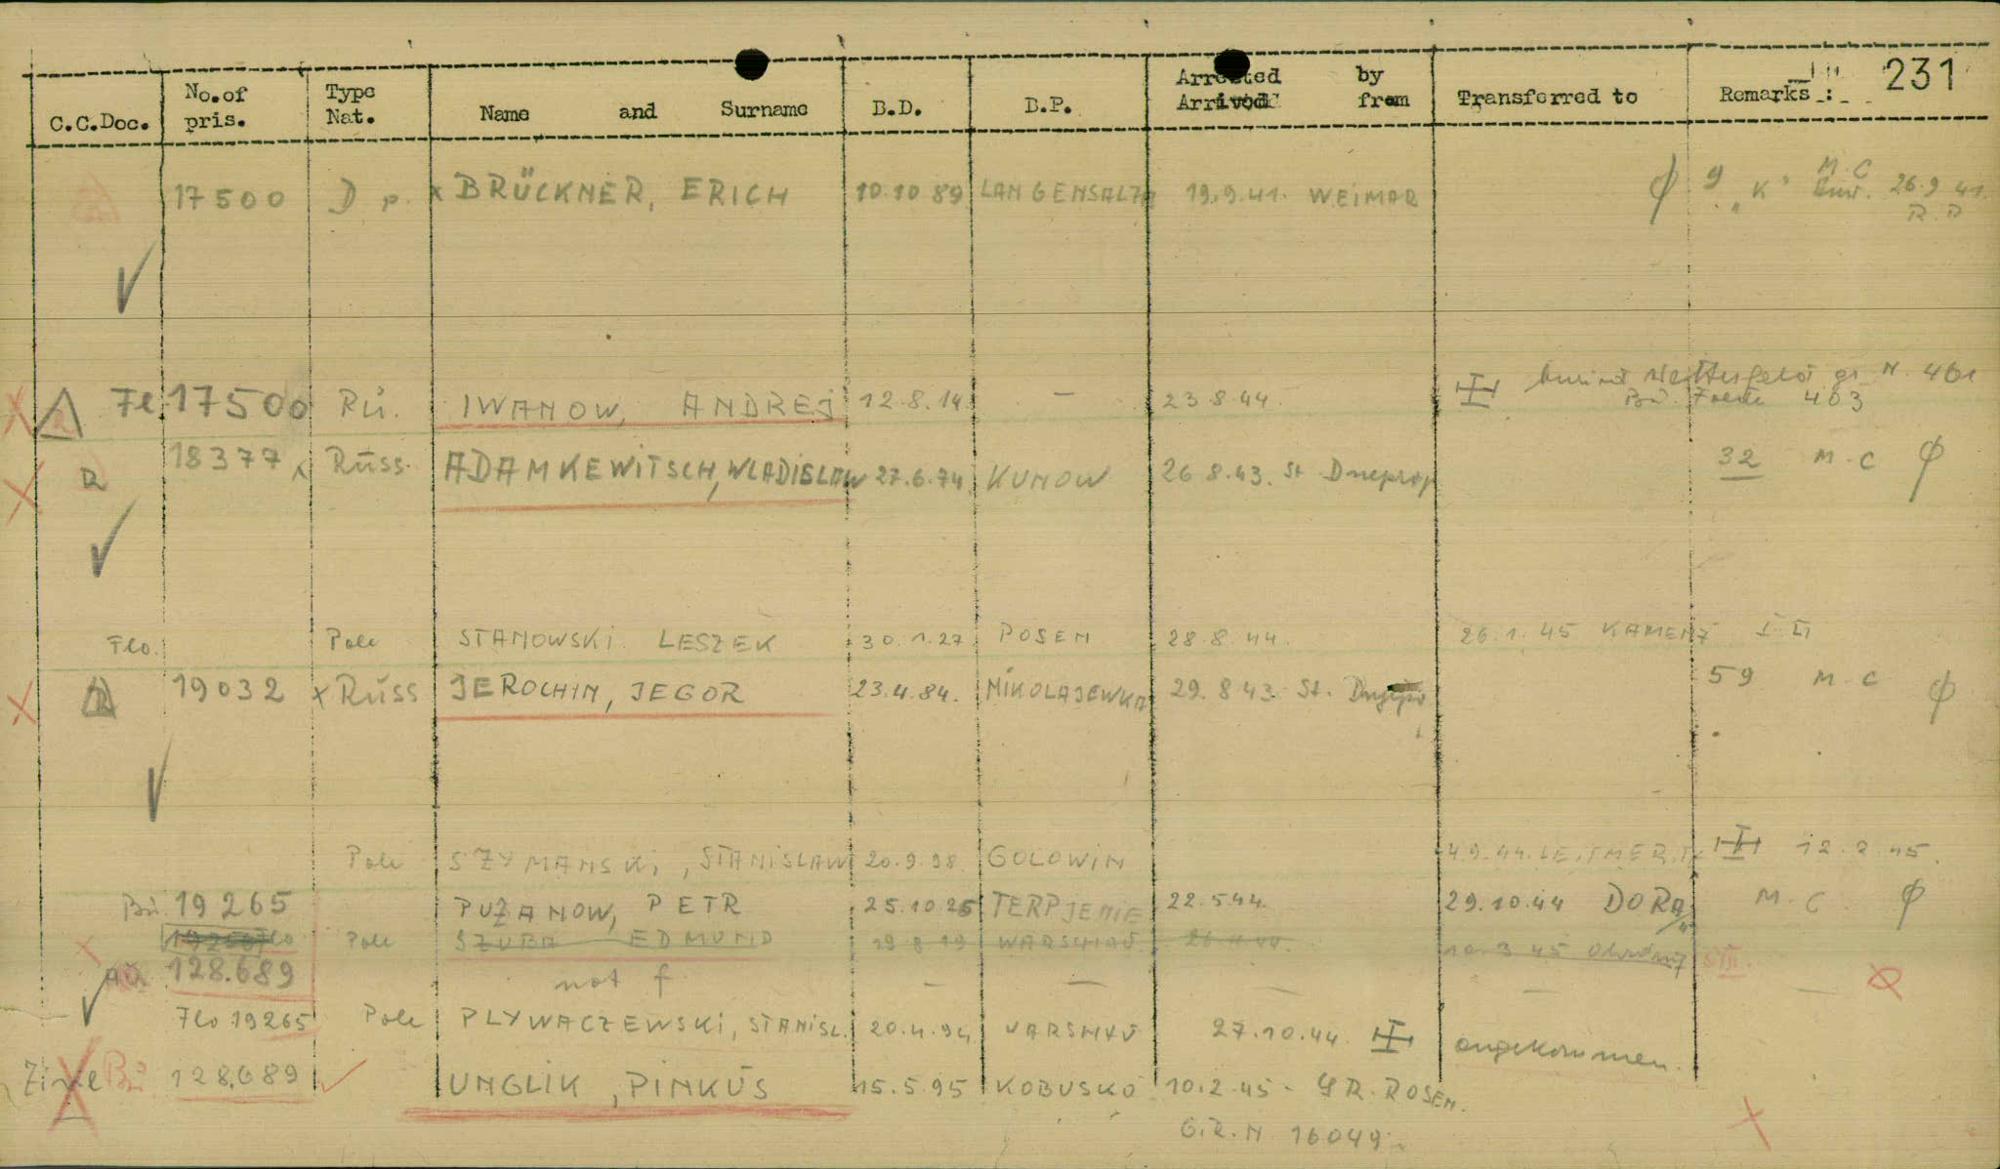 231
C.C.Doc. No.of pris. Type Nat. Name and Surname B.D. B.P. Arrested by Arrived from Transferred to Remarks :
17500 D p. x BRÜCKNER, ERICH 10.10 89 LANGENSALZA 19.9.41. WEIMAR φ 9 "K" M.C 26.9 41.
Fl 17500 Rü. IWANOW, ANDREJ 12.8.14 — 23 8.44. 461
403
R 18377 x Rüss. ADAMKEWITSCH, WLADISLAW 27.6.74 KUNOW 26 8.43. St Dneprop 32 M.C φ
Flo. Pole STANOWSKI LESZEK 30.1.27 POSEN 28.8.44. 26.1.45 KAMENZ
R 19032 x Rüss JEROCHIN, JEGOR 23.4.84. NIKOLAJEWKA 29.8 43 St. 59 M C φ
Pole SZYMANSKI, STANISLAW 20.9.98 GOLOWIN 12.2.45.
Bü. 19265 PUZANOW, PETR 25.10.25 TERPJENIE 22.5.44. 29.10.44 DORA M.C. φ
Pole SZUBA EDMUND 19 8 19 WARSCHAU
128.689 not f — — — — —
Flo 19265 Pole PLYWACZEWSKI, STANISL. 20.4.94 WARSHAU 27.10.44. angekommen.
Bü. 128.689 UNGLIK, PINKUS 15.5.95 KOBUSKO 10.2.45 - GR. ROSEN.
G.R.N 16049.